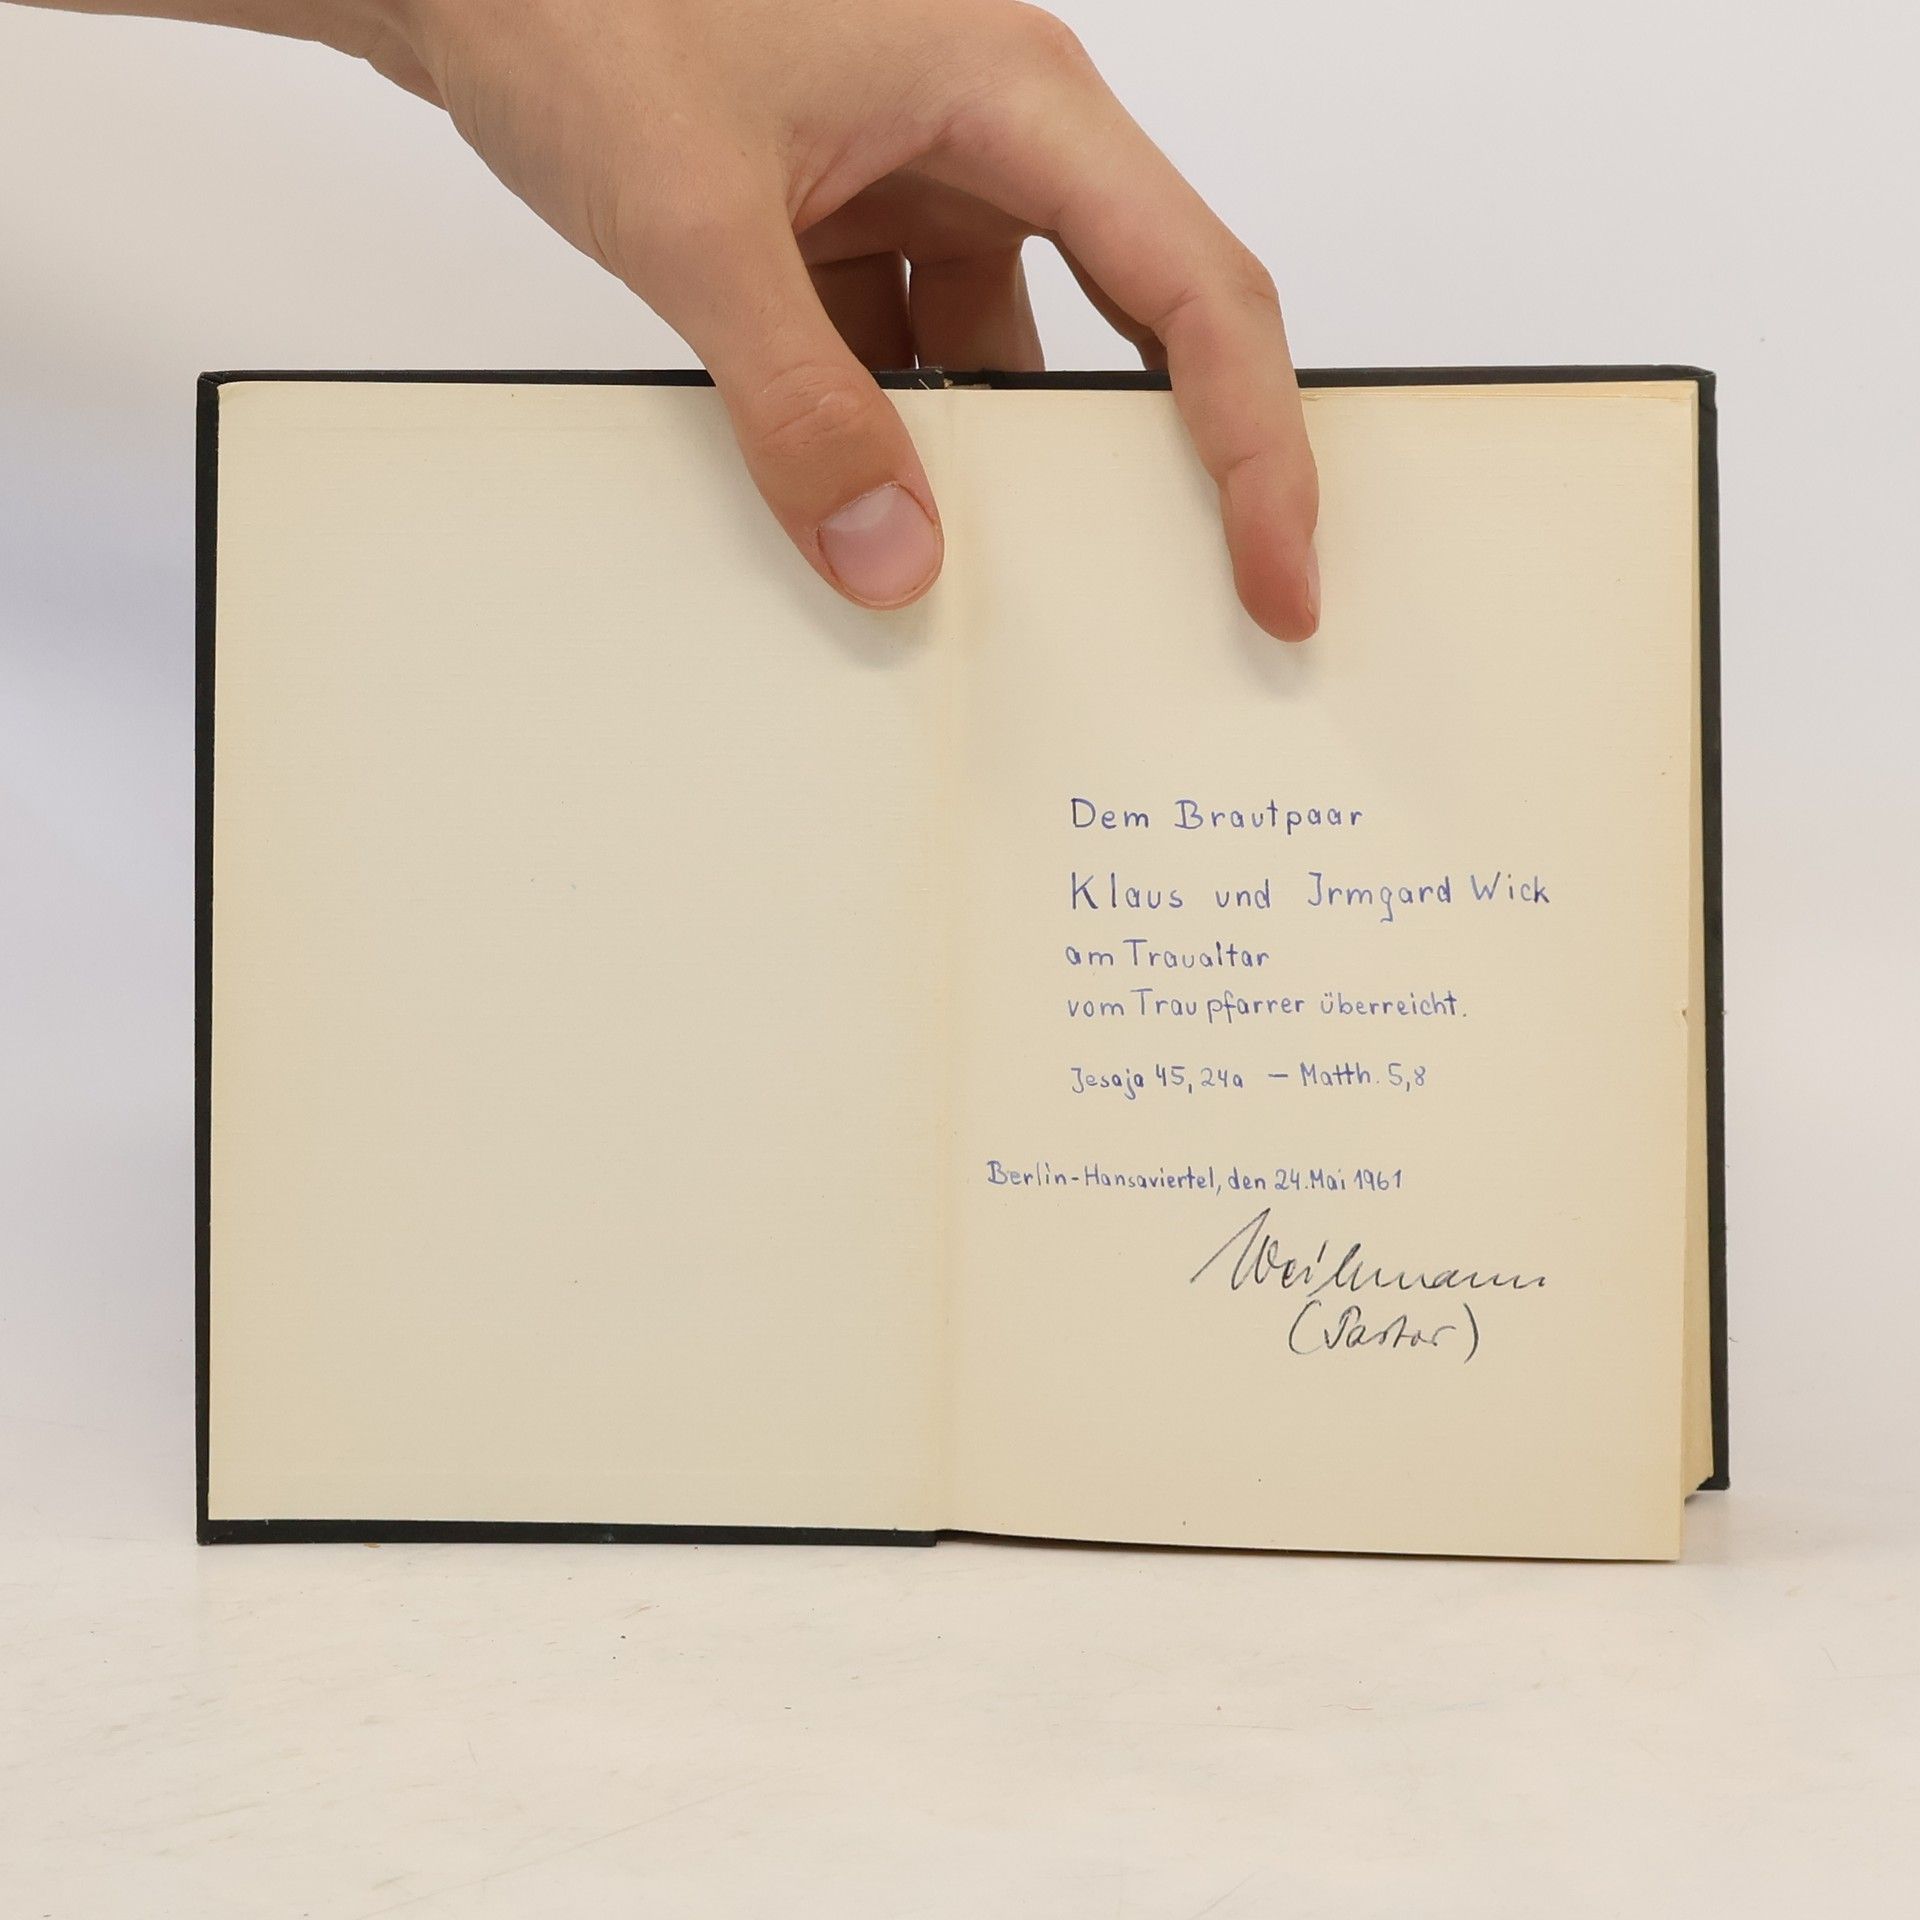 Dem Brautpaar
Klaus und Irmgard Wick
am Traualtar
vom Traupfarrer überreicht.
Jesaja 45, 24a – Matth. 5,8
Berlin-Hansaviertel, den 24. Mai 1961
(Pastor)